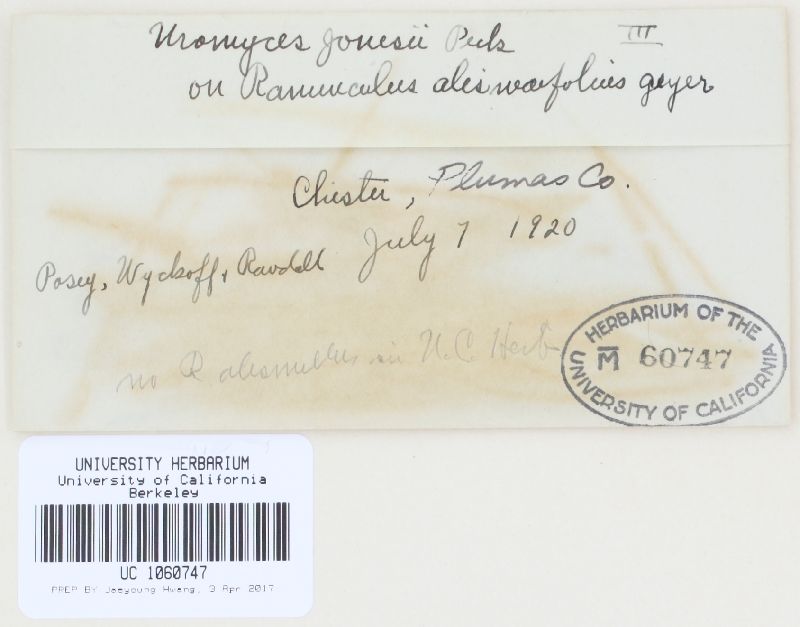 Uromyces Jonesii Peck III
on Ranunculus alismaefolius geyer
Chester, Plumas Co.
July 7 1920
Posey, Wyckoff +
no R in U.C. Herb
HERBARIUM OF THE
M 60747
UNIVERSITY OF CALIFORNIA
UNIVERSITY HERBARIUM
University of California
Berkeley
UC 1060747
PREP BY Jaeyoung Hwang, 3 Apr 2017